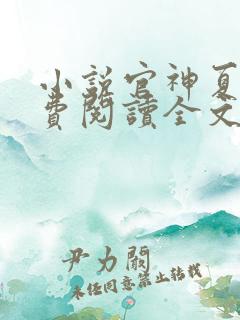 小説官神夏
費閱讀全文
尹力關
未經同意禁止轉載